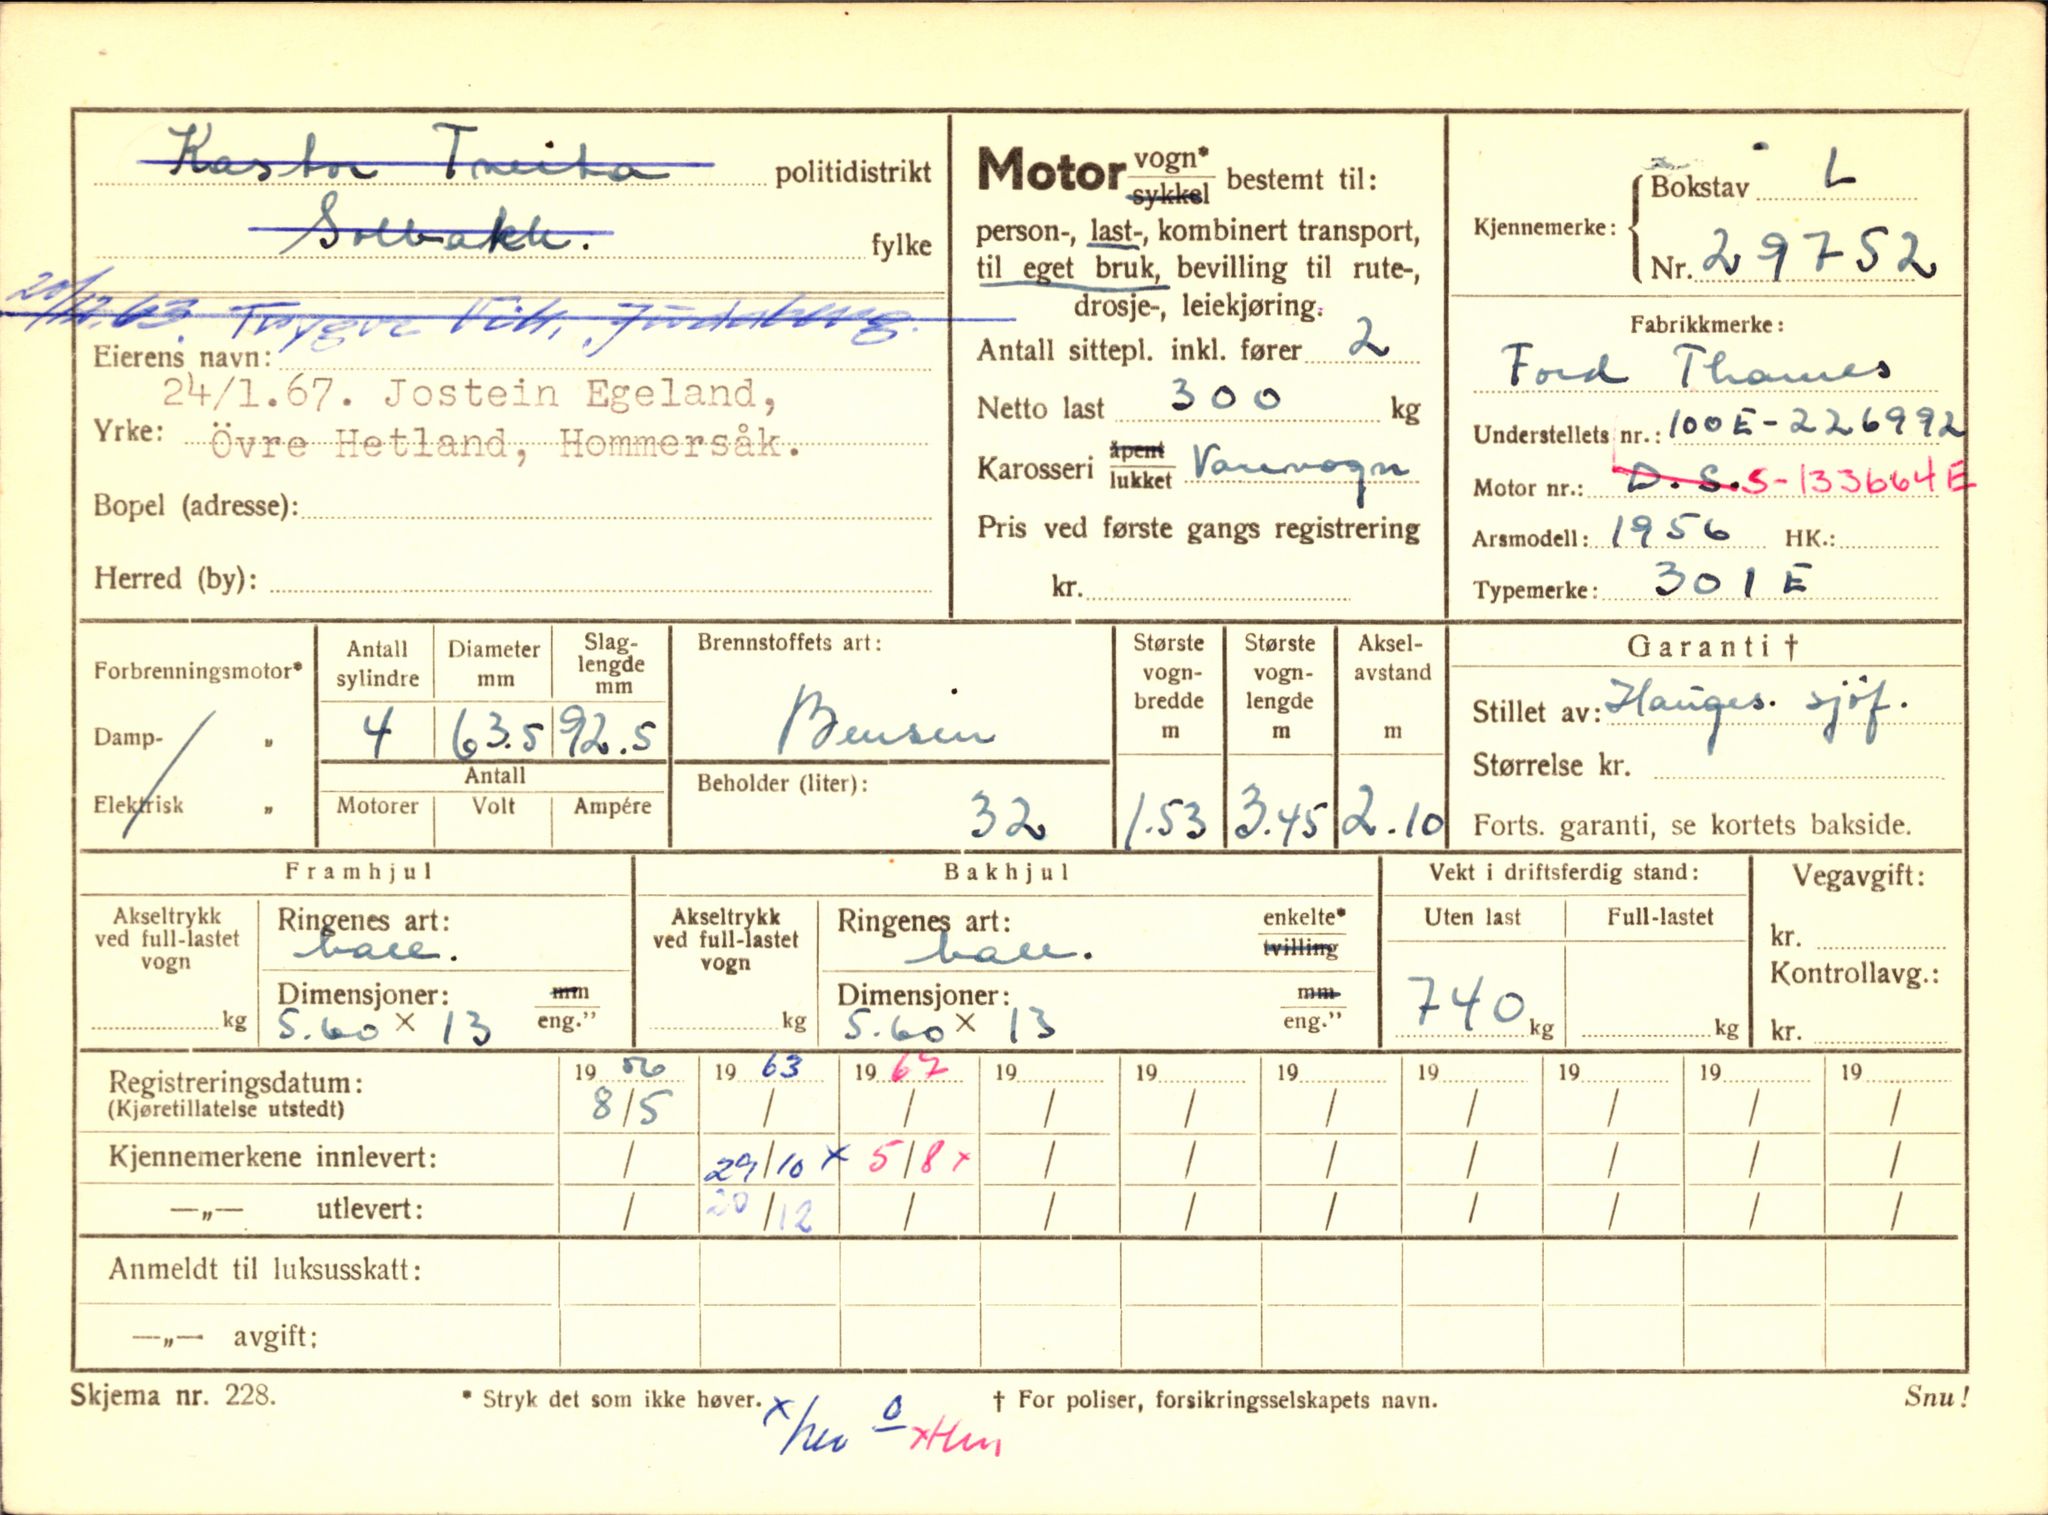 Kastor Treita politidistrikt
Solbakk. fylke
20/12.63 Trygve Jüdaberg.
Eierens navn:
24/1.67. Jostein Egeland,
Yrke: Övre Hetland, Hommersåk.
Bopel (adresse):
Herred (by):
Motor vogn* sykkel bestemt til:
person-, last-, kombinert transport,
til eget bruk, bevilling til rute-,
drosje-, leiekjøring.
Antall sittepl. inkl. fører 2
Netto last 300 kg
Karosseri åpent lukket Varevogn
Pris ved første gangs registrering
kr.
Kjennemerke: Bokstav L
Nr. 29752
Fabrikkmerke:
Ford Thames
Understellets nr.: 100E-226992
Motor nr.: D.S. S-133664E
Årsmodell: 1956 HK.:
Typemerke: 301E
Forbrenningsmotor*
Damp- „
Elektrisk „
Antall sylindre
Diameter mm
Slaglengde mm
4 63.5 92.5
Antall
Motorer Volt Ampére
Brennstoffets art:
Bensin
Beholder (liter):
32
Største vognbredde m
1.53
Største vognlengde m
3.45
Akselavstand m
2.10
Garanti †
Stillet av: Hauges. sjöf.
Størrelse kr.
Forts. garanti, se kortets bakside.
Framhjul
Akseltrykk ved full-lastet vogn
kg
Ringenes art:
ball.
Dimensjoner: mm eng.”
5.60 × 13
Bakhjul
Akseltrykk ved full-lastet vogn
kg
Ringenes art: enkelte* tvilling
ball.
Dimensjoner: mm eng.”
5.60 × 13
Vekt i driftsferdig stand:
Uten last Full-lastet
740 kg kg
Vegavgift:
kr.
Kontrollavg.:
kr.
Registreringsdatum: 19 56 19 63 19 67 19 19 19 19 19 19 19
(Kjøretillatelse utstedt) 8/5 / / / / / / / / /
Kjennemerkene innlevert: / 29/10 x 5/8 x / / / / / / /
—„— utlevert: / 20/12 / / / / / / / /
Anmeldt til luksusskatt:
—„— avgift:
Skjema nr. 228. * Stryk det som ikke høver. † For poliser, forsikringsselskapets navn. Snu!